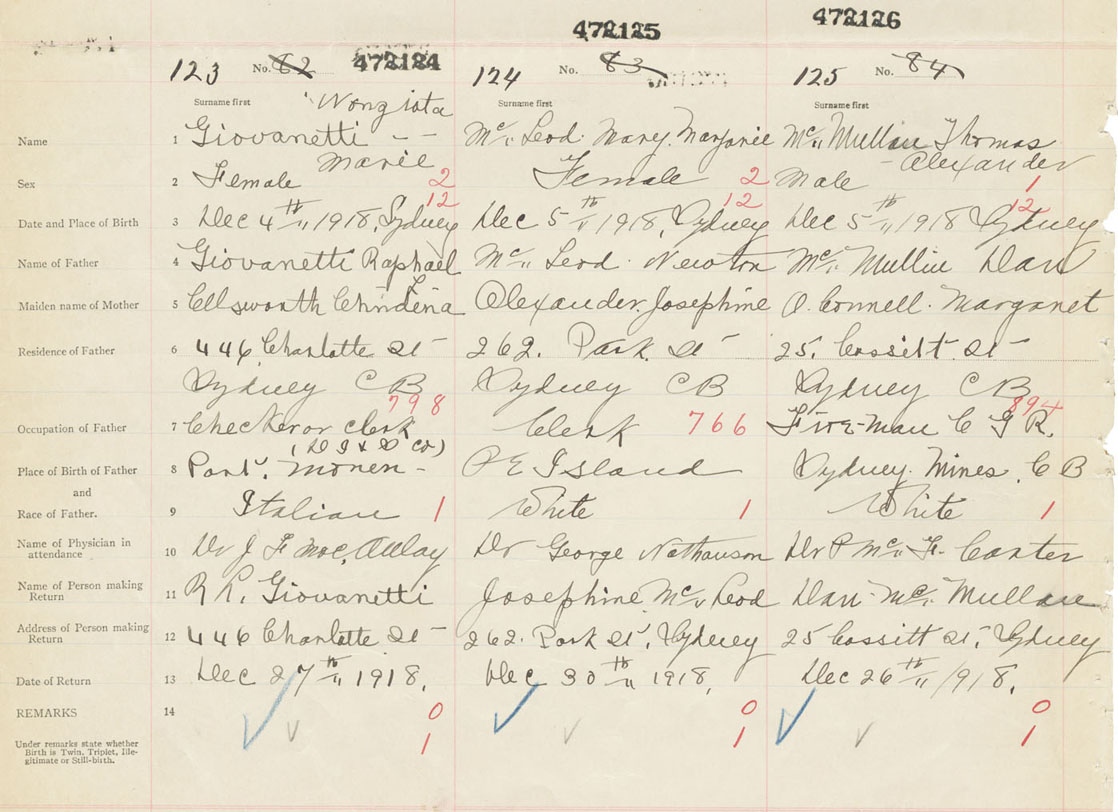 472125 472126
123 No. 82 472124 124 No. 83 125 No. 84
Surname first Surname first Surname first
Name 1 Giovanetti - - Marie Mc Leod. Mary. Marjorie Mc Mullan Thomas - Alexander
Sex 2 Female 2 Female 2 Male 1
12 12 12
Date and Place of Birth 3 Dec 4th 1918, Sydney Dec 5th 1918, Sydney Dec 5th 1918 Sydney
Name of Father 4 Giovanetti Raphael Mc Leod. Newton Mc Mullin Dan
Maiden name of Mother 5 Ellsworth Alexander. Josephine O. Connell. Margaret
Residence of Father 6 446 Charlotte St 262. Park St 25. Cossitt St
Sydney C B Sydney C B Sydney C B
798 894
Occupation of Father 7 Checker or Clerk Clerk 766 Fire-man C G R.
(D I & S Co)
Place of Birth of Father 8 P E Island Sydney. Mines. C B
and
Race of Father. 9 Italian 1 White 1 White 1
Name of Physician in
attendance 10 Dr J F Mac Aulay Dr George Nathanson Dr P Mc F. Carter
Name of Person making
Return 11 R R. Giovanetti Josephine Mc Leod Dan Mc. Mullan
Address of Person making
Return 12 446 Charlotte St 262. Park St, Sydney 25 Cossitt St, Sydney
Date of Return 13 Dec 27th 1918. Dec 30th 1918, Dec 26th 1918.
REMARKS 14 0 0 0
Under remarks state whether
Birth is Twin, Triplet, Ille-
gitimate or Still-birth. 1 1 1